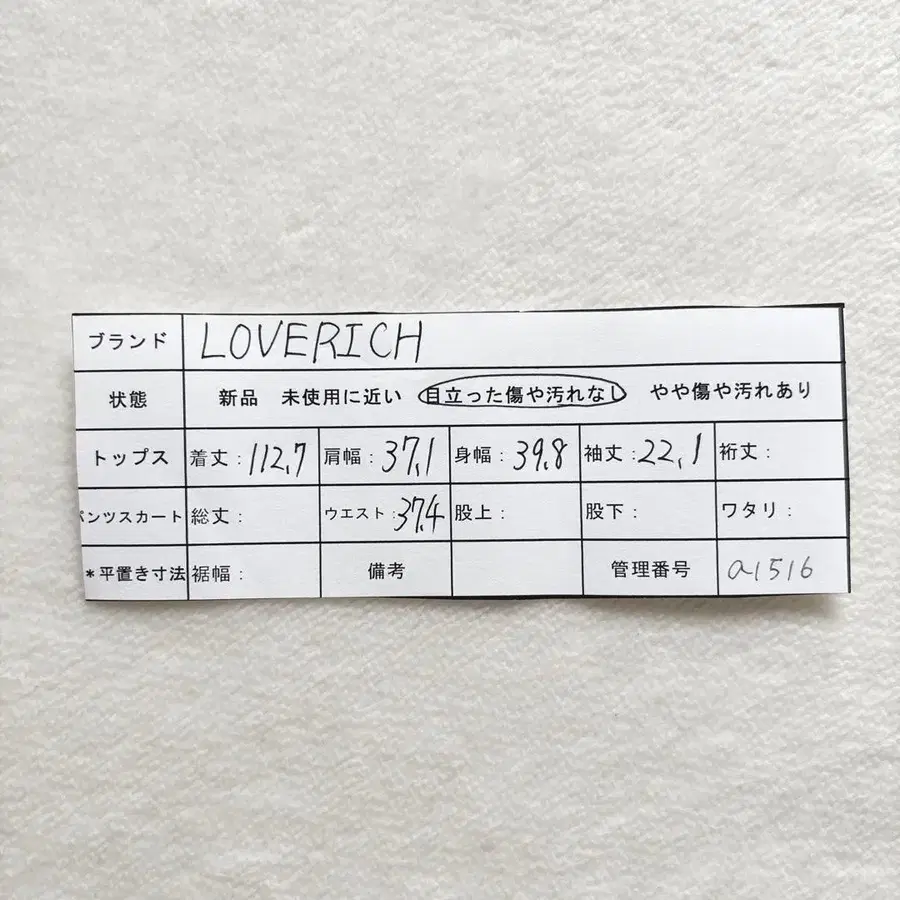 ブランド LOVERICH
状態 新品 未使用に近い 目立った傷や汚れなし やや傷や汚れあり
トップス 着丈:112.7 肩幅:37.1 身幅:39.8 袖丈:22.1 裄丈:
パンツスカート 総丈: ウエスト:37.4 股上: 股下: ワタリ:
*平置き寸法 裾幅: 備考 管理番号 a1516